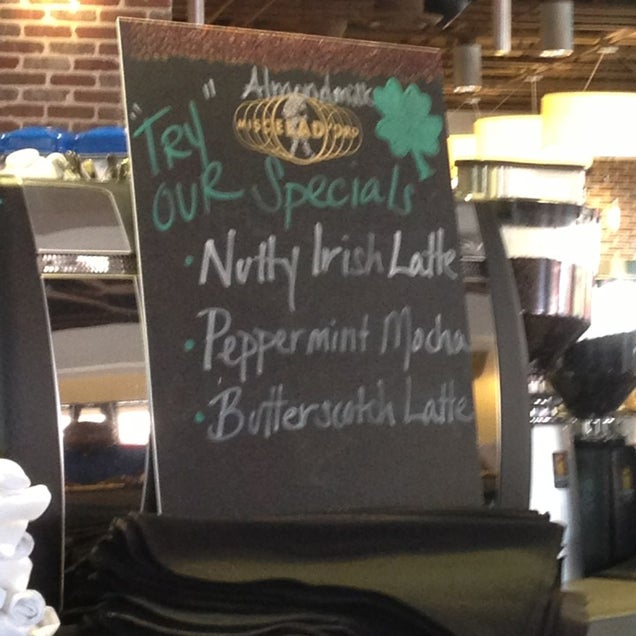 Almondmilk
"Try"
OUR Specials
· Nutty Irish Latte
· Peppermint Mocha
· Butterscotch Latte